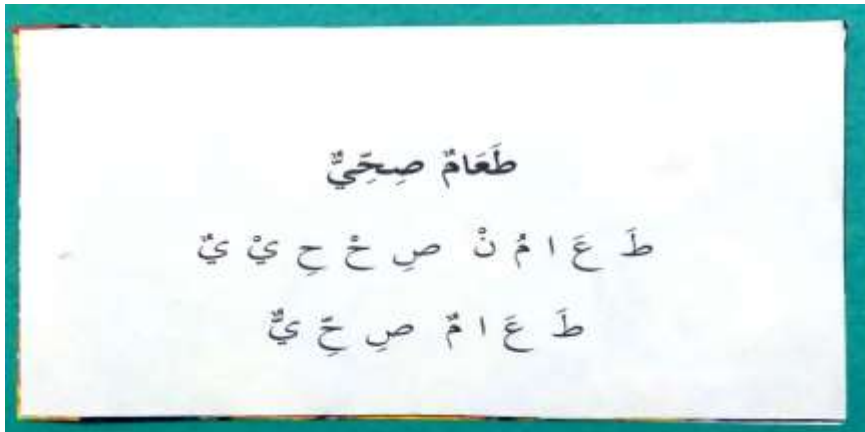 طَعَامٌ صِحِّيٌّ
طَ عَ ا مُ نْ صِ حْ حِ يْ يٌ
طَ عَ ا مٌ صِ حِّ يٌّ